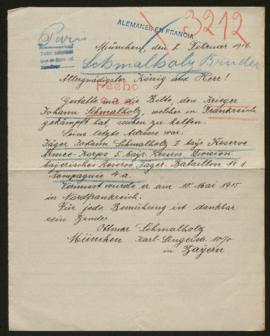 ALEMANES EN FRANCIA
3212
Paris
München, den 2. Februar 1916.
Schmalholz Bruder
Allergnädigster König und Herr!
Gestatte mir die Bitte, dem Krieger
Johann Schmalholz, welcher in Frankreich
gekämpft hat zu helfen.
Seine letzte Adresse war:
Jäger Johann Schmalholz I bayr. Reserve
Armee-Korps 5. bayr. Reserve Division
bayerisches Reserve Jäger Bataillon N° 1
Kompagnie 4a.
Vermisst wurde er am 10. Mai 1915
in Nordfrankreich.
Für jede Bemühung ist dankbar
sein Bruder
Schmalholz
München Karl-Singerstr.
in Bayern